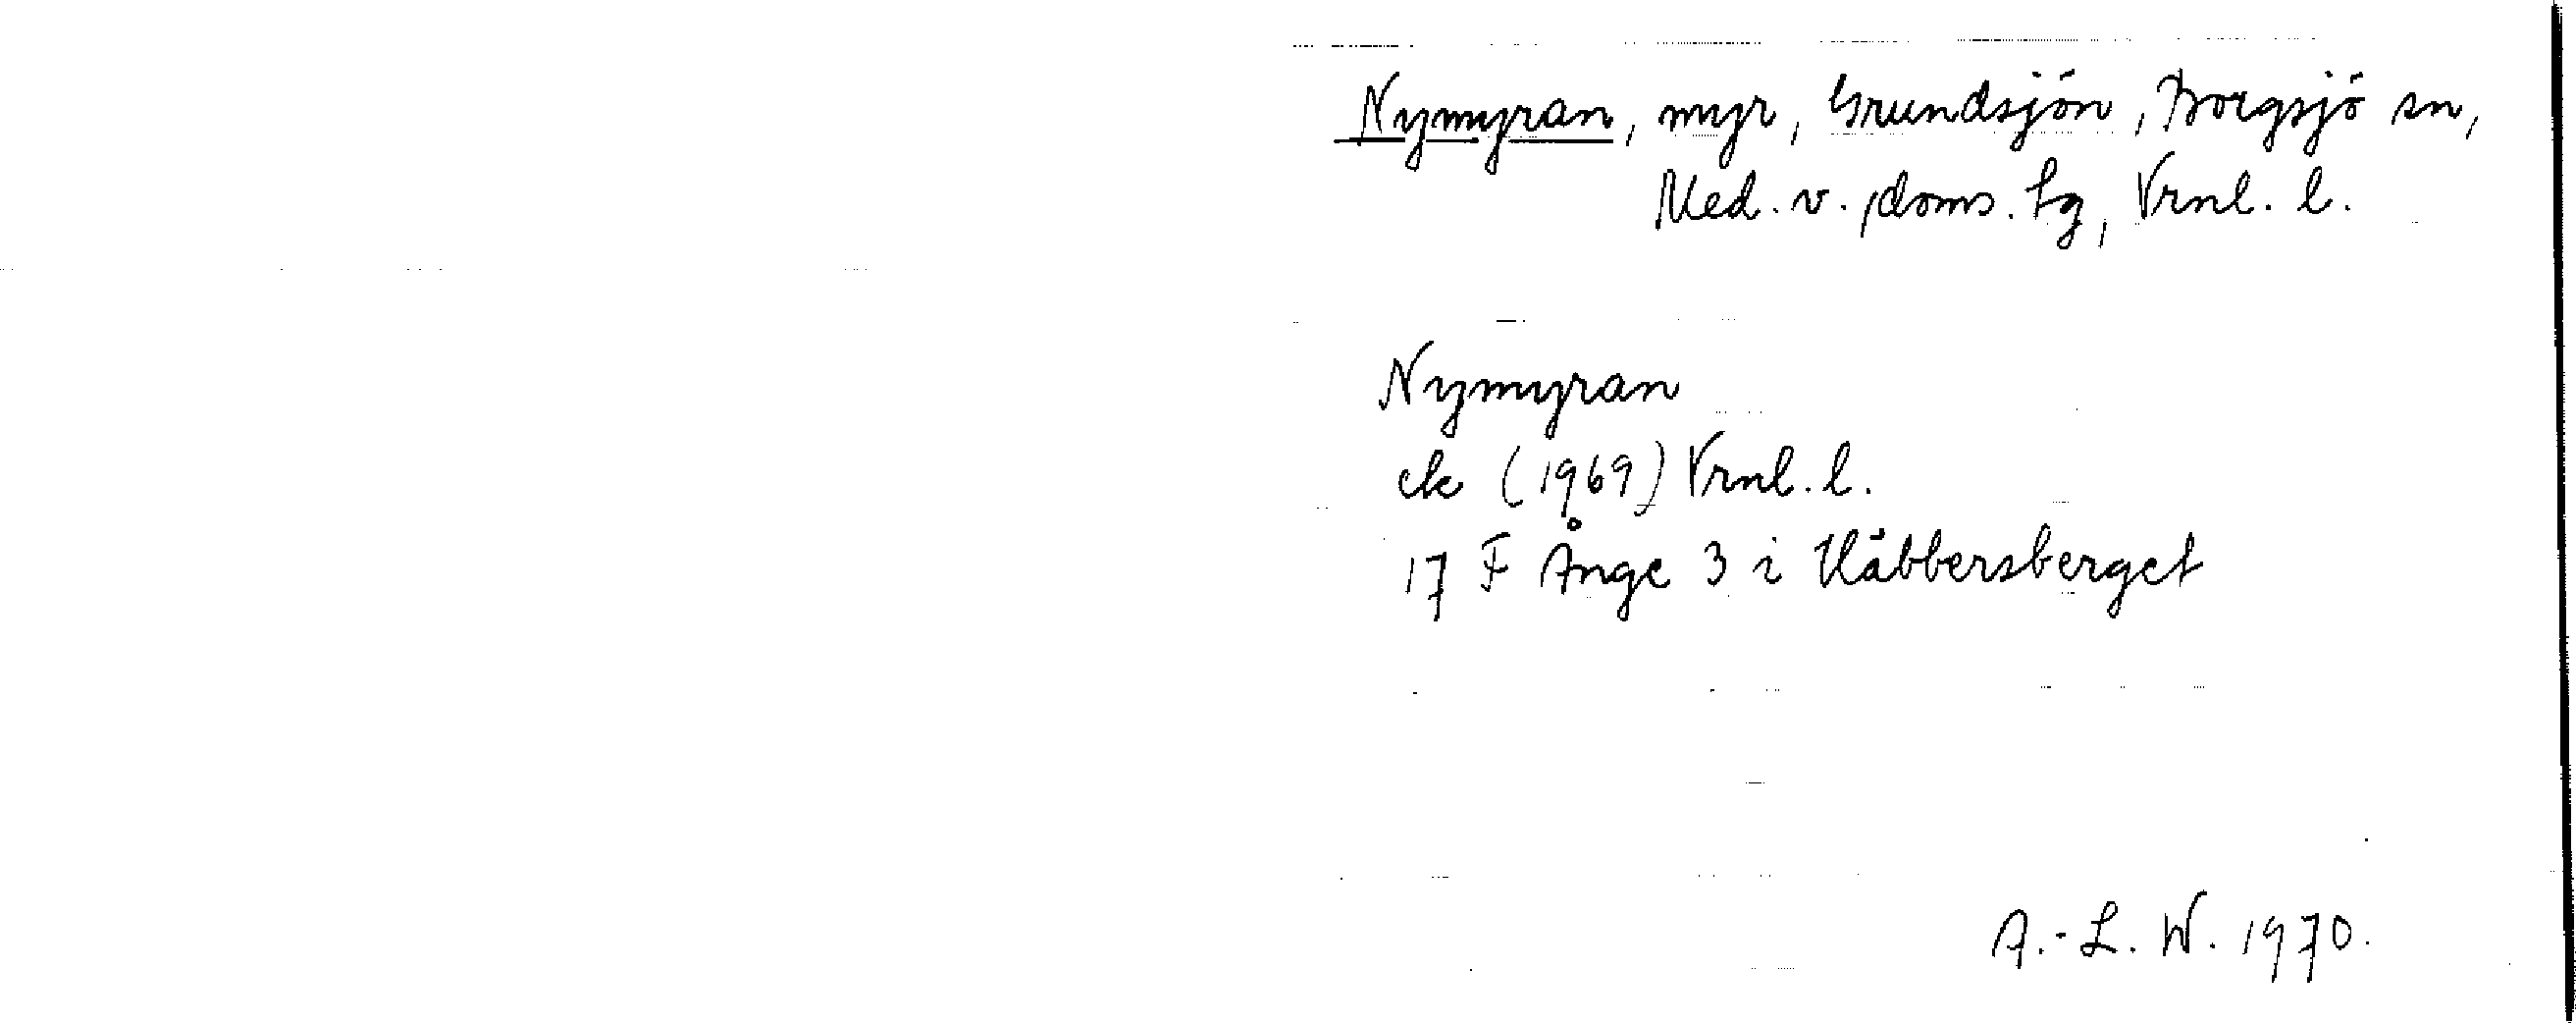 Nymyran, myr, Grundsjön, Borgsjö sn,
Med. v., doms. tg, Vrnl. l.
Nymyran
ek (1969) Vrnl. l.
17 F Ånge 3 i Kläbbersberget
A.-L. W. 1970.